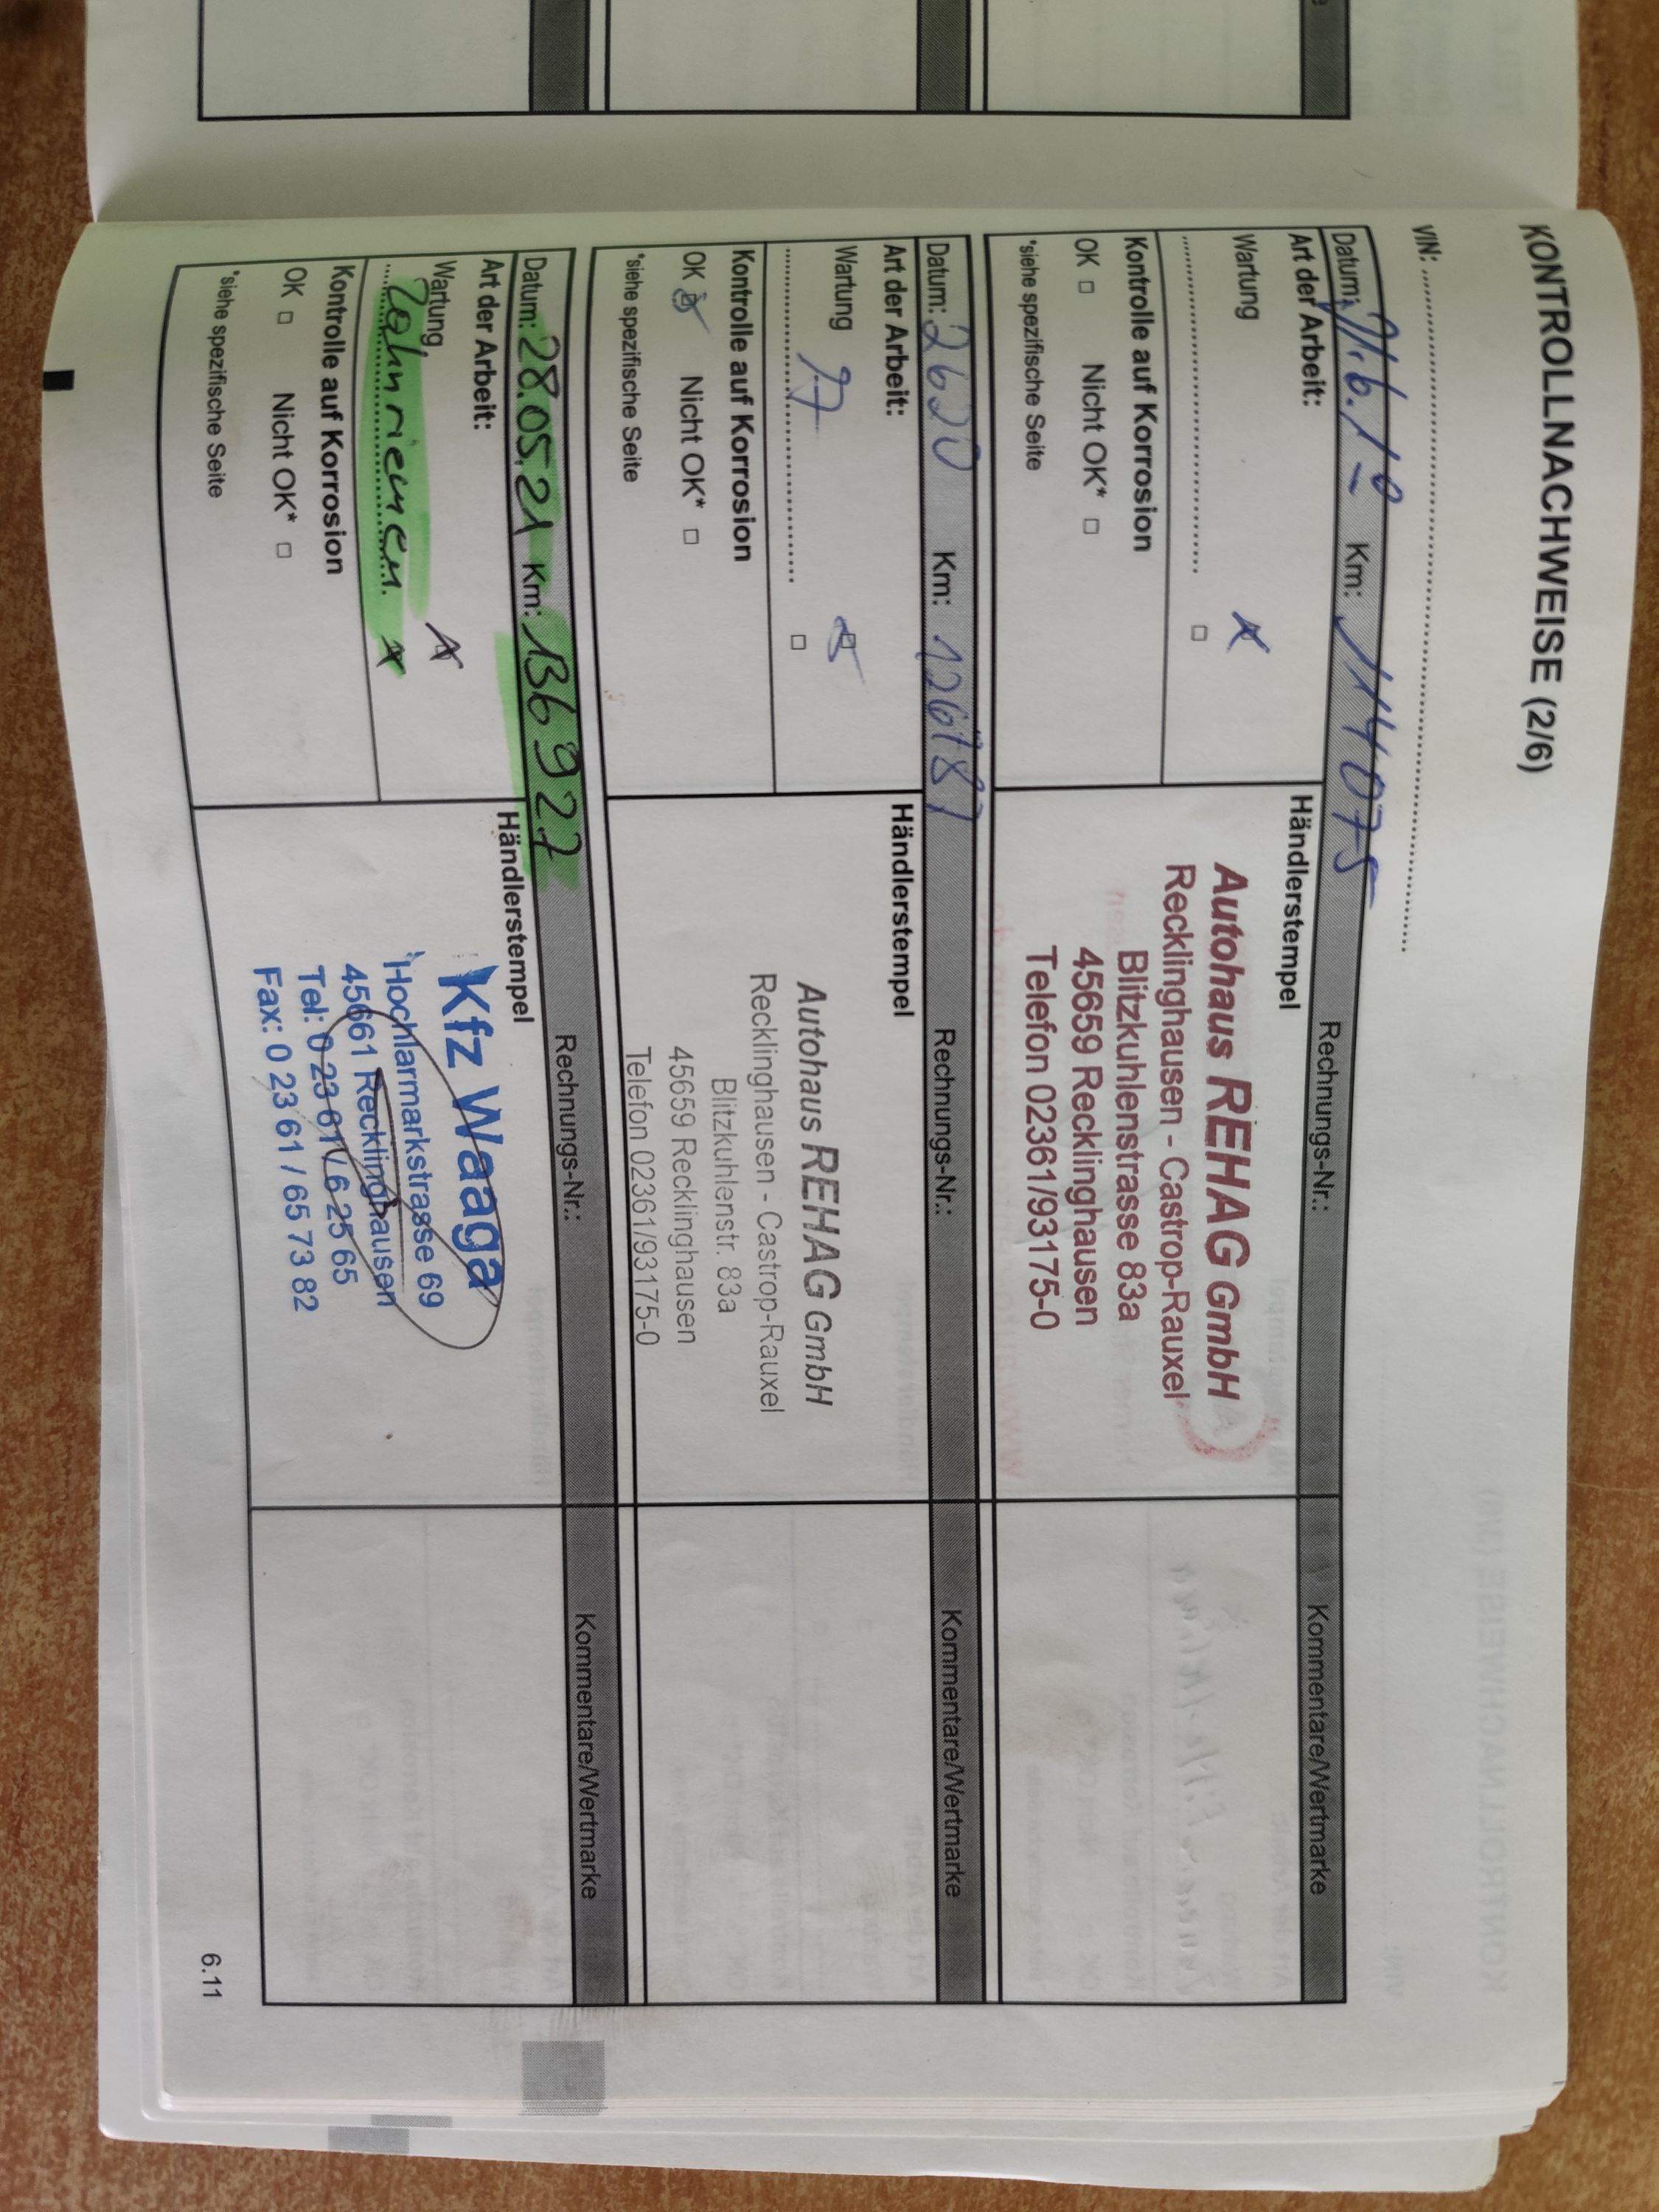 KONTROLLNACHWEISE (2/6)
VIN:
Datum: Km: 114075 Rechnungs-Nr.: Kommentare/Wertmarke
Art der Arbeit:
Wartung x
Kontrolle auf Korrosion
OK □ Nicht OK* □
*siehe spezifische Seite
Händlerstempel
Autohaus REHAG GmbH
Recklinghausen - Castrop-Rauxel
Blitzkuhlenstrasse 83a
45659 Recklinghausen
Telefon 02361/93175-0
Datum: 2620 Km: Rechnungs-Nr.: Kommentare/Wertmarke
Art der Arbeit:
Wartung
Kontrolle auf Korrosion
OK Nicht OK* □
*siehe spezifische Seite
Händlerstempel
Autohaus REHAG GmbH
Recklinghausen - Castrop-Rauxel
Blitzkuhlenstr. 83a
45659 Recklinghausen
Telefon 02361/93175-0
Datum: 28.05.21 Km: 136927 Rechnungs-Nr.: Kommentare/Wertmarke
Art der Arbeit:
Wartung x
Zahnriemen. x
Kontrolle auf Korrosion
OK □ Nicht OK* □
*siehe spezifische Seite
Händlerstempel
Kfz Waaga
Hochlarmarkstrasse 69
45661 Recklinghausen
Tel: 0 23 61 / 6 25 65
Fax: 0 23 61 / 65 73 82
6.11